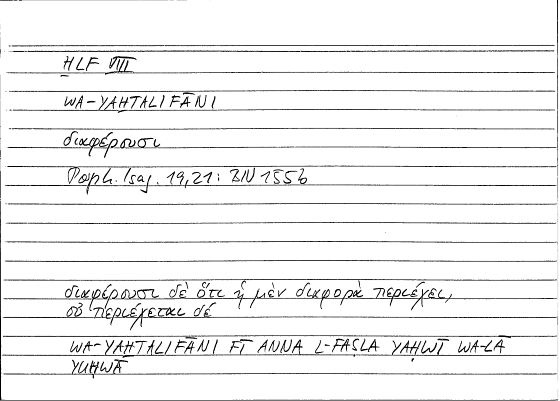 ḪLF VIII
WA-YAḪTALIFĀNI
διαφέρουσι
Porph. Isag. 19,21: BN 155b
διαφέρουσι δὲ ὅτι ἡ μὲν διαφορὰ περιέχει,
οὐ περιέχεται δέ
WA-YAḪTALIFĀNI FĪ ANNA L-FAṢLA YAḤWĪ WA-LĀ
YUḤWĀ